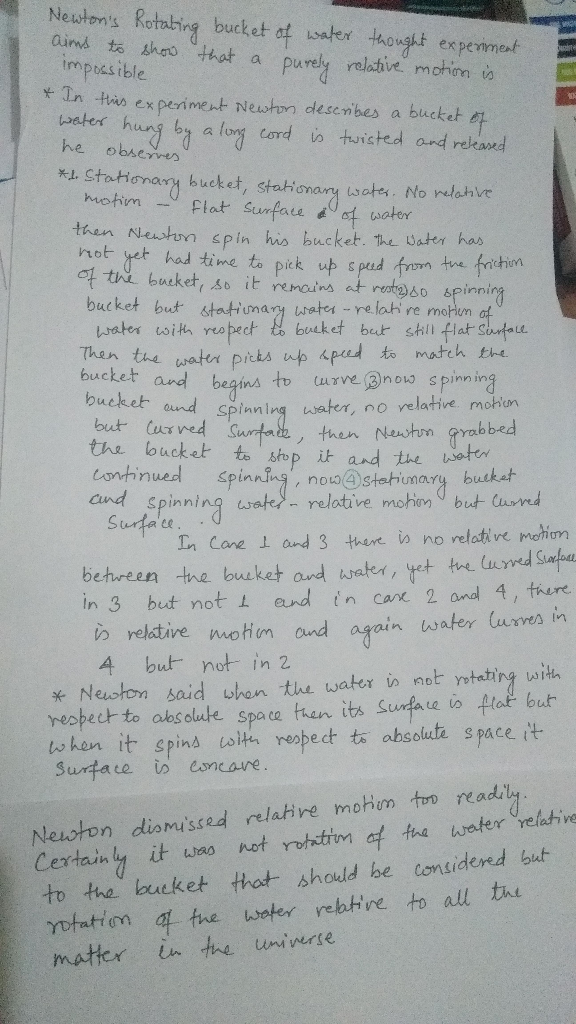 Newton's Rotating bucket of water thought experiment
aims to show that a purely relative motion is
impossible
* In this experiment Newton describes a bucket of
water hung by a long cord is twisted and released
he observes
*1. Stationary bucket, stationary water. No relative
motion - Flat surface of water
then Newton spin his bucket. the water has
not yet had time to pick up speed from the friction
of the bucket, so it remains at rest ② so spinning
bucket but stationary water - relative motion of
water with respect to bucket but still flat surface
Then the water picks up speed to match the
bucket and begins to curve ③ now spinning
bucket and spinning water, no relative motion
but curved surface, then Newton grabbed
the bucket to stop it and the water
continued spinning, now ④ stationary bucket
and spinning water - relative motion but curved
surface.
In case 1 and 3 there is no relative motion
between the bucket and water, yet the curved surface
in 3 but not 1 and in case 2 and 4, there
is relative motion and again water curves in
4 but not in 2
* Newton said when the water is not rotating with
respect to absolute space then its surface is flat but
when it spins with respect to absolute space it
surface is concave.
Newton dismissed relative motion too readily.
Certainly it was not rotation of the water relative
to the bucket that should be considered but
rotation of the water relative to all the
matter in the universe